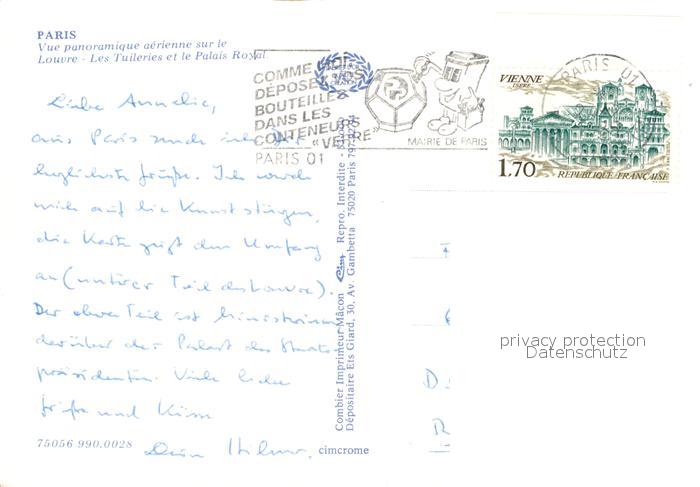 PARIS
Vue panoramique aérienne sur le
Louvre - Les Tuileries et le Palais Royal
COMME MOI,
DÉPOSEZ VOS
BOUTEILLES
DANS LES
CONTENEURS
« VERRE »
PARIS 01
MAIRIE DE PARIS
PARIS 01
VIENNE
ISERE
1,70
REPUBLIQUE FRANÇAISE
Liebe Annelie,
aus Paris sende ich
herzlichste Grüße. Ich werde
mich auf die Kunst stürzen,
die Karte zeigt den Umfang
an (unterer Teil des Louvre).
Der obere Teil ist Ministerium
darüber der Palast des Staats-
präsidenten. Viele liebe
Grüße und Küsse
Dein
Combier Imprimeur Mâcon Cim Repro. Interdite -
Dépositaire Ets Giard, 30, Av. Gambetta 75020 Paris
75056 990.0028
cimcrome
privacy protection
Datenschutz